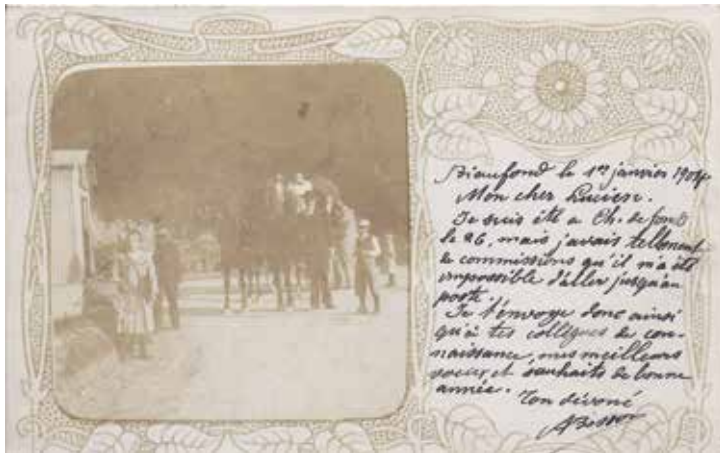 Biaufond le 1er janvier 1904
Mon cher Lucien.
Je suis été a Ch. de fond
le 26, mais j'avais tellement
de commissions qu'il m'a été
impossible d'aller jusqu'au
poste.
Je t'envoye donc ainsi
qu'à tes collègues de con-
naissance, mes meilleurs
voeux et souhaits de bonne
année.
Ton dévoué